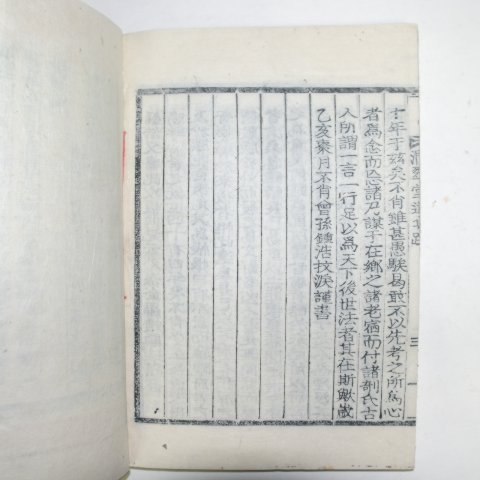 十年于玆矣不肖雖甚愚騃曷敢不以先考之所爲心
者爲念而忘諸乃謀于在鄉之諸老宿而付諸剞氏古
人所謂一言一行足以爲天下後世法者其在斯歟歲
乙亥棗月不肖曾孫鍾浩抆淚謹書